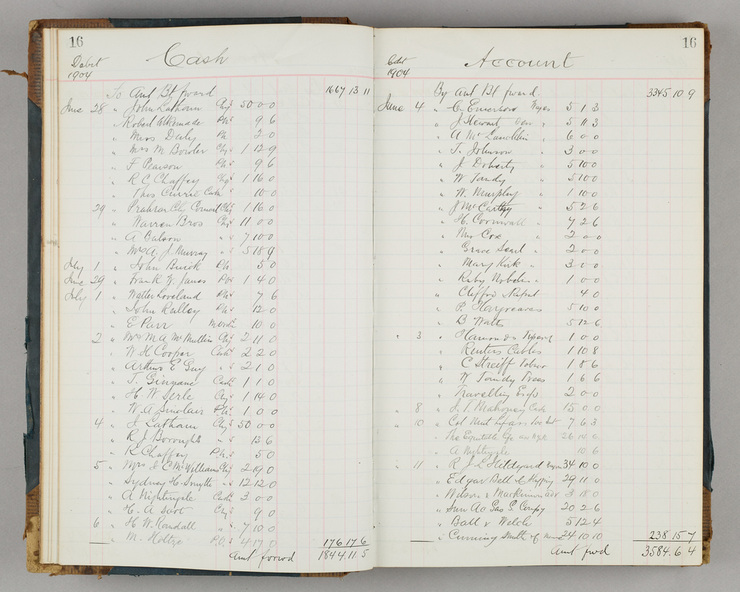 16
Cash
Debit
1904
To Amt Bt forward 1667 13 11
June 28 " John Latham Chq 50 0 0
" Robert 9 6
" Miss Daly PN 2 0
" Mrs M Bowler Chq 1 12 9
" F Pearson 9 6
" R C Chaffey Chq 1 16 0
" Thos Currie Cash 10 0
29 " Prahran City Council Chq 1 16 0
" Warren Bros Chq 11 0 0
" A Catson " 7 10 0
" Mrs A J Murray " 5 18 9
July 1 " John Buick PN 5 0
June 29 " Frank Y James 1 4 0
July 1 " Walter Loveland 7 6
" John Ralley 12 0
" E Parr 10 0
2 " Mrs M A McMullin Chq 2 11 0
" W H Cooper Cash 2 2 0
" Arthur E Guy " 2 1 0
" T. Cash 1 1 0
" H W Serle Chq 1 14 0
" W A Sinclair 1 0 0
4 " J Latham Chq 50 0 0
" R J Boroughs " 13 6
" R Chaffey 5 0
5 " Mrs E C McWilliams Chq 2 19 0
" Sydney H Smyth " 12 12 0
" A Nightingale Cash 3 0 0
" H. A Scot Chq 9 0
6 " H W Randall " 7 10 0
" M. Holtze P.O. 4 17 0 176 17 6
Amt forwd 1844 11 5
16
Account
Cdt
1904
By Amt Bt forward 3345 10 9
June 4 " C Emerson Wages 5 1 3
" J Stewart " 5 11 3
" A McLauchlin " 6 0 0
" T. Johnson " 3 0 0
" J. Doherty " 5 10 0
" W Tandy " 5 10 0
" W. Murphy " 1 10 0
" J McCarthy " 5 2 6
" H. Cornwall " 7 2 6
" Miss Cox " 2 0 0
" Grace Saul " 2 0 0
" Mary Kirk " 3 0 0
" Ruby " 1 0 0
" Clifford " 4 0
" P. Hargreaves 5 10 0
" B Watts 5 12 6
" 3 " Hammond & 1 0 0
" Reuters Cables 1 10 8
" C Streiff 1 8 6
" W Tandy 1 6 6
" Travelling Exps 2 0 0
" 8 " J. P. Mahoney Cash 15 0 0
" 10 " Col Mut 7 6 3
" The Equitable
" A Nightingale 10 6
" 11 " R J L Hildyard 34 10 0
" Edgar Ball 29 11 0
" Wilson & MacKinnon
" Sun Ao Gas Compy 20 2 6
" Ball & Welch 5 12 4
" Cumming Smith 24 10 10 238 15 7
Amt fwd 3584 6 4